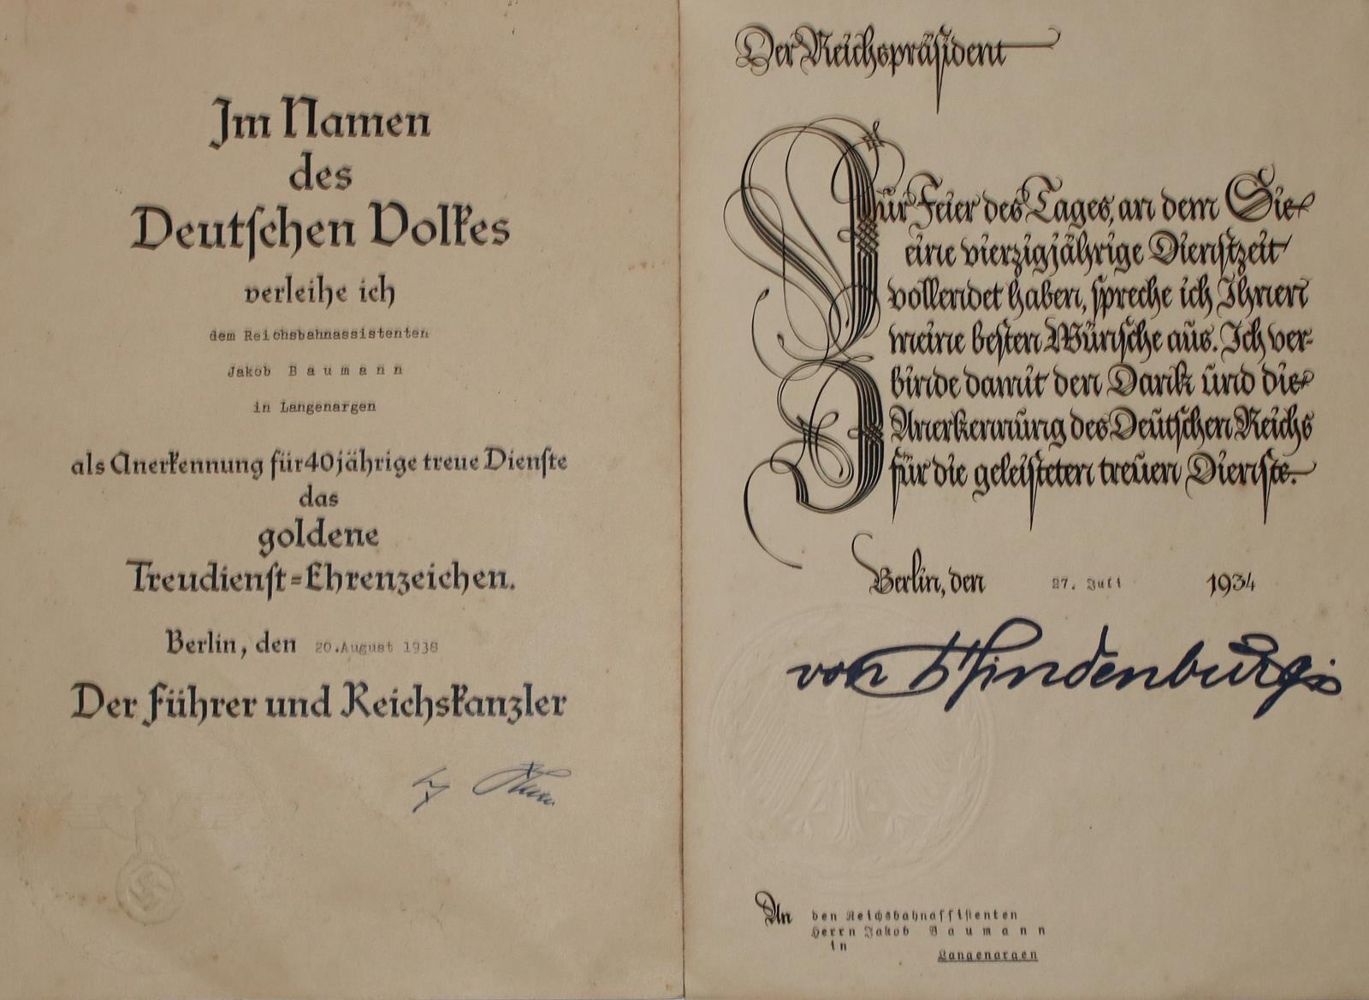 Im Namen
des
Deutschen Volkes
verleihe ich
dem Reichsbahnassistenten
Jakob Baumann
in Langenargen
als Anerkennung für 40jährige treue Dienste
das
goldene
Treudienst=Ehrenzeichen.
Berlin, den 20.August 1938
Der Führer und Reichskanzler
Der Reichspräsident
Zur Feier des Tages, an dem Sie
eine vierzigjährige Dienstzeit
vollendet haben, spreche ich Ihnen
meine besten Wünsche aus. Ich ver-
binde damit den Dank und die
Anerkennung des Deutschen Reichs
für die geleisteten treuen Dienste.
Berlin, den 27. Juli 1934
von Hindenburg
An den Reichsbahnassistenten
Herrn Jakob Baumann
in
Langenargen